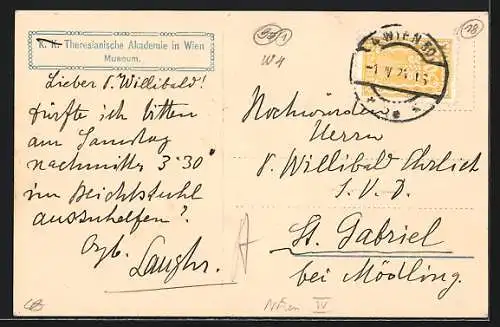 K. K. Theresianische Akademie in Wien
Museum.
Lieber P. Willibald!
Dürfte ich bitten
am Samstag
nachmittg 3·30
im Beichtstuhl
auszuhelfen?
Ergb.
WIEN 50
Hochwürden
Herrn
P. Willibald Ehrlich
S. V. D.
St. Gabriel
bei Mödling.
W4
18
Wien IV